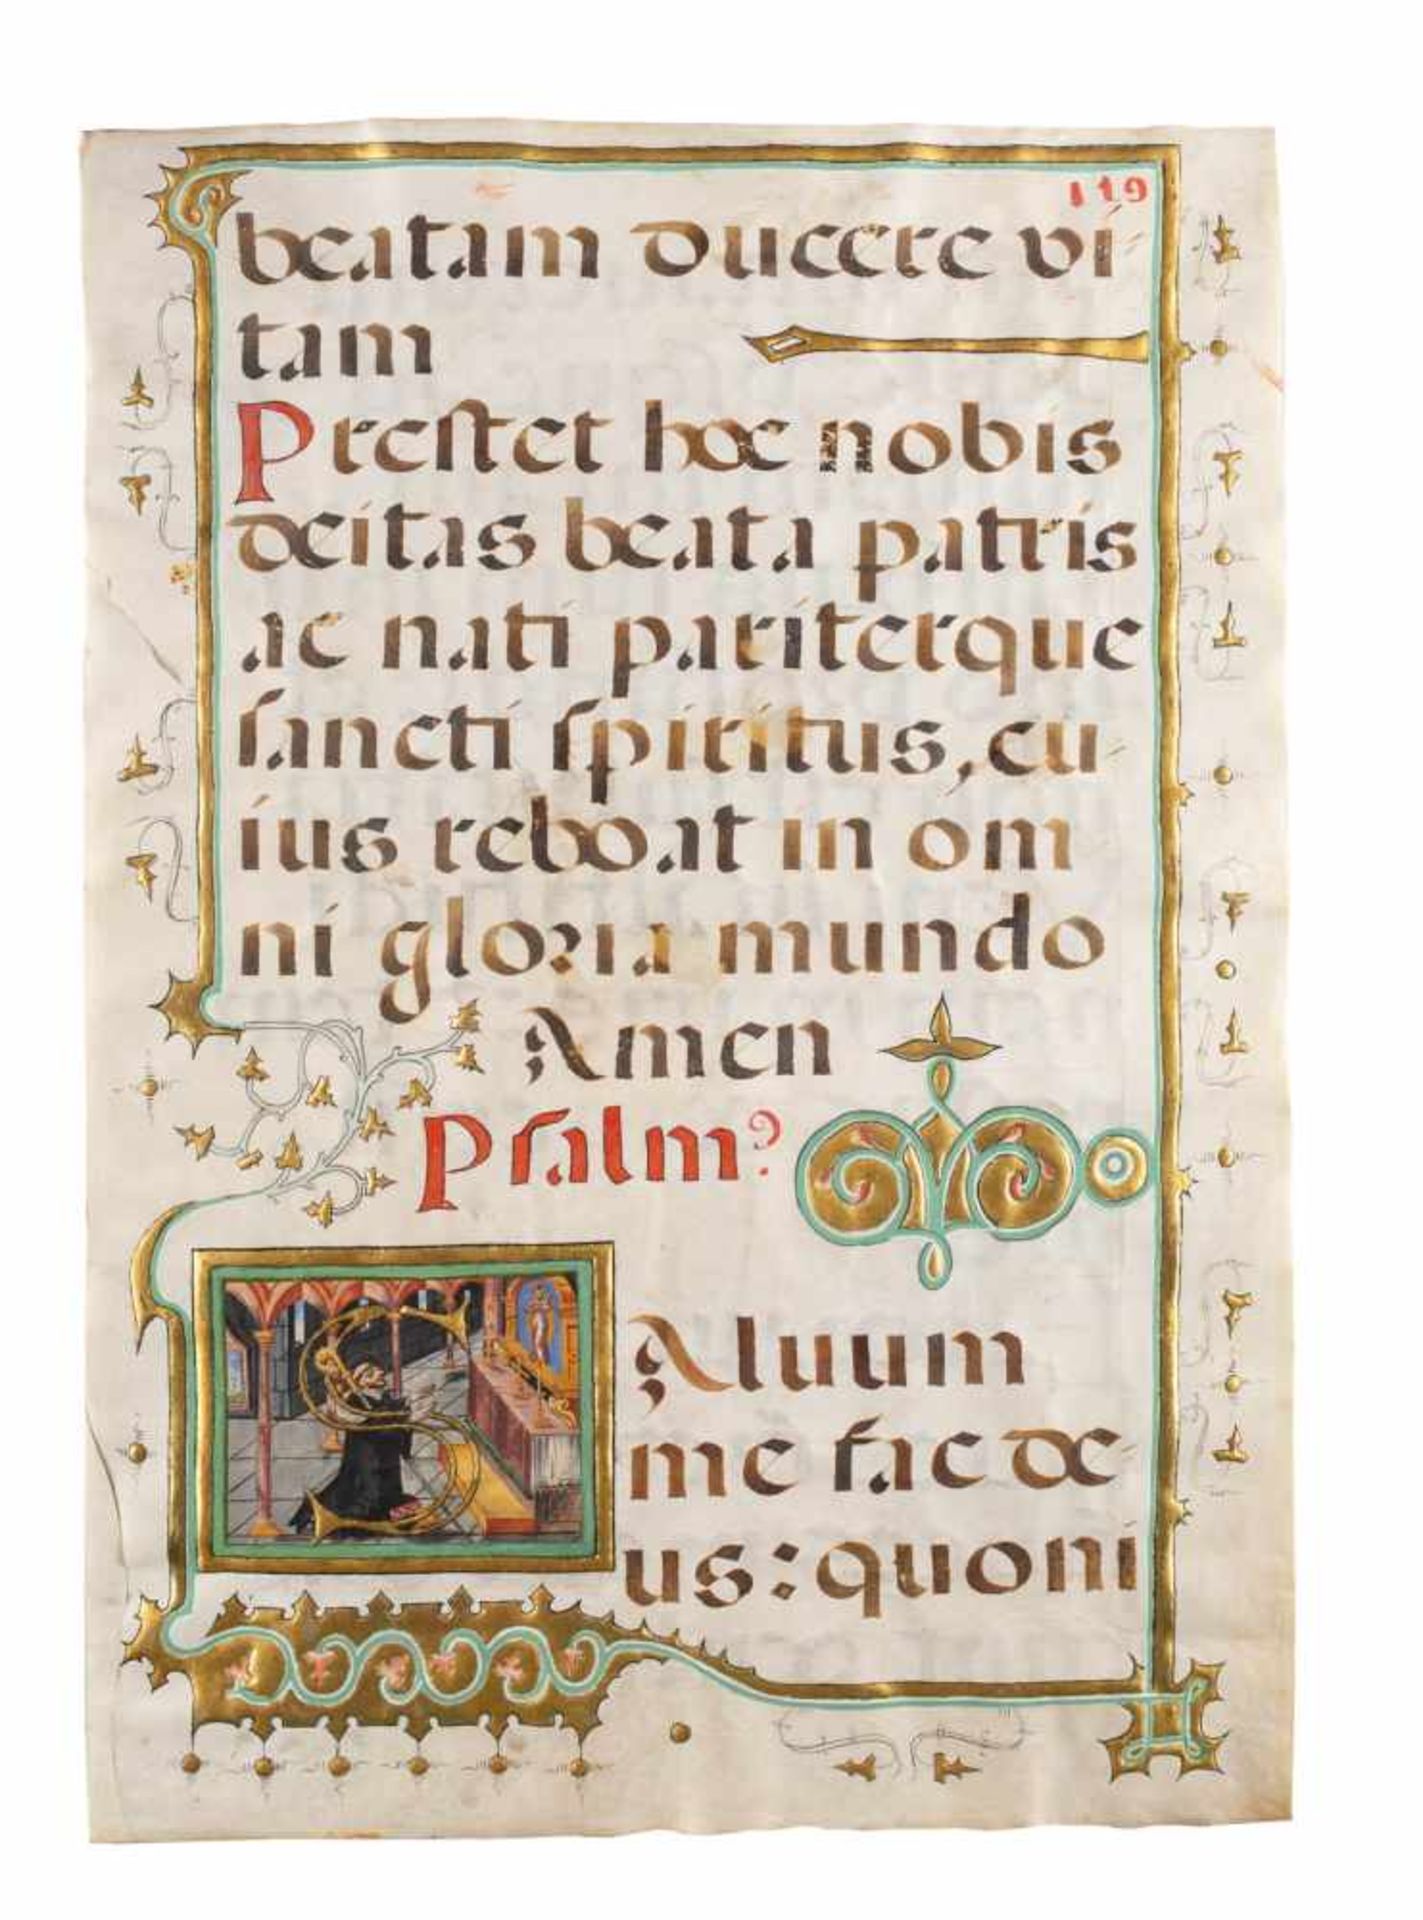 119
beatam ducere vi-
tam
Prestet hoc nobis
deitas beata patris
ac nati pariterque
sancti spiritus, cu-
ius reboat in om
ni gloria mundo
Amen
Psalm?
S Aluum
me fac de-
us: quoni